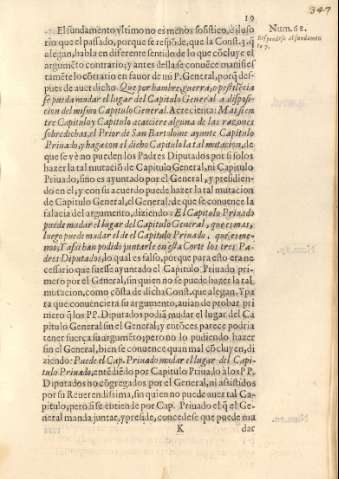 19
347
El fundamento vltimo no es menos sofistico, è iluso
rio que el passado, porque se respõde, que la Const. 3. q̃
alegan, habla en diferente sentido de lo que cõcluye el
argumẽto contrario; y antes della se conuẽce manifies
tamẽte lo contrario en fauor de mi P. General, porq̃ des-
pues de auer dicho: Que por hambre, guerra, o pestilẽcia
se pueda mudar el lugar del Capitulo General a disposi-
cion del mismo Capitulo General. Acrecienta: Mas si en
tre Capitulo y Capitulo acaeciere alguna de las razones
sobredichas, el Prior de San Bartolome ayunte Capitulo
Priuado, y haga con el dicho Capitulo la tal mutacion, de
que se vè no pueden los Padres Diputados por si solos
hazer la tal mutacion de Capitulo General, ni Capitulo
Priuado, sino es ayuntado por el General, y presidien-
do en el, y con su acuerdo puede hazer la tal mutacion
de Capitulo General, el General: de que se conuence la
falacia del argumento, diziendo: El Capitulo Priuado
puede mudar el lugar del Capitulo General, que es mas,
luego puede mudar el de el Capitulo Priuado, que es me-
nos; Y assi han podido juntarle en esta Corte los tres Pa-
dres Diputados, lo qual es falso, porque para esto era ne
cessario que fuesse ayuntado el Capitulo Priuado pri-
mero por el General, sin quien no se puede hazer la tal
mutacion, como cõsta de dicha Const. que alegan. Y pa
ra que conuenciera su argumento, auian de probar pri
mero q̃ los PP. Diputados podiã mudar el lugar del Ca
pitulo General sin el General; y entonces parece podria
tener fuerça su argumẽto; pero no lo pudiendo hazer
sin el General, bien se conuence quan mal cõcluyen, di
ziendo: Puede el Cap. Priuado mudar el lugar del Capi-
tulo Priuado, entẽdiẽdo por Capitulo Priuado à los PP.
Diputados no cõgregados por el General, ni assistidos
por su Reuerendissima, sin quien no puede auer tal Ca-
pitulo; pero si se entiende por Cap. Priuado el q̃ el Ge-
neral manda juntar, y preside, concedese que puede mu
K
dar
Num. 68.
Respondese al fundamento